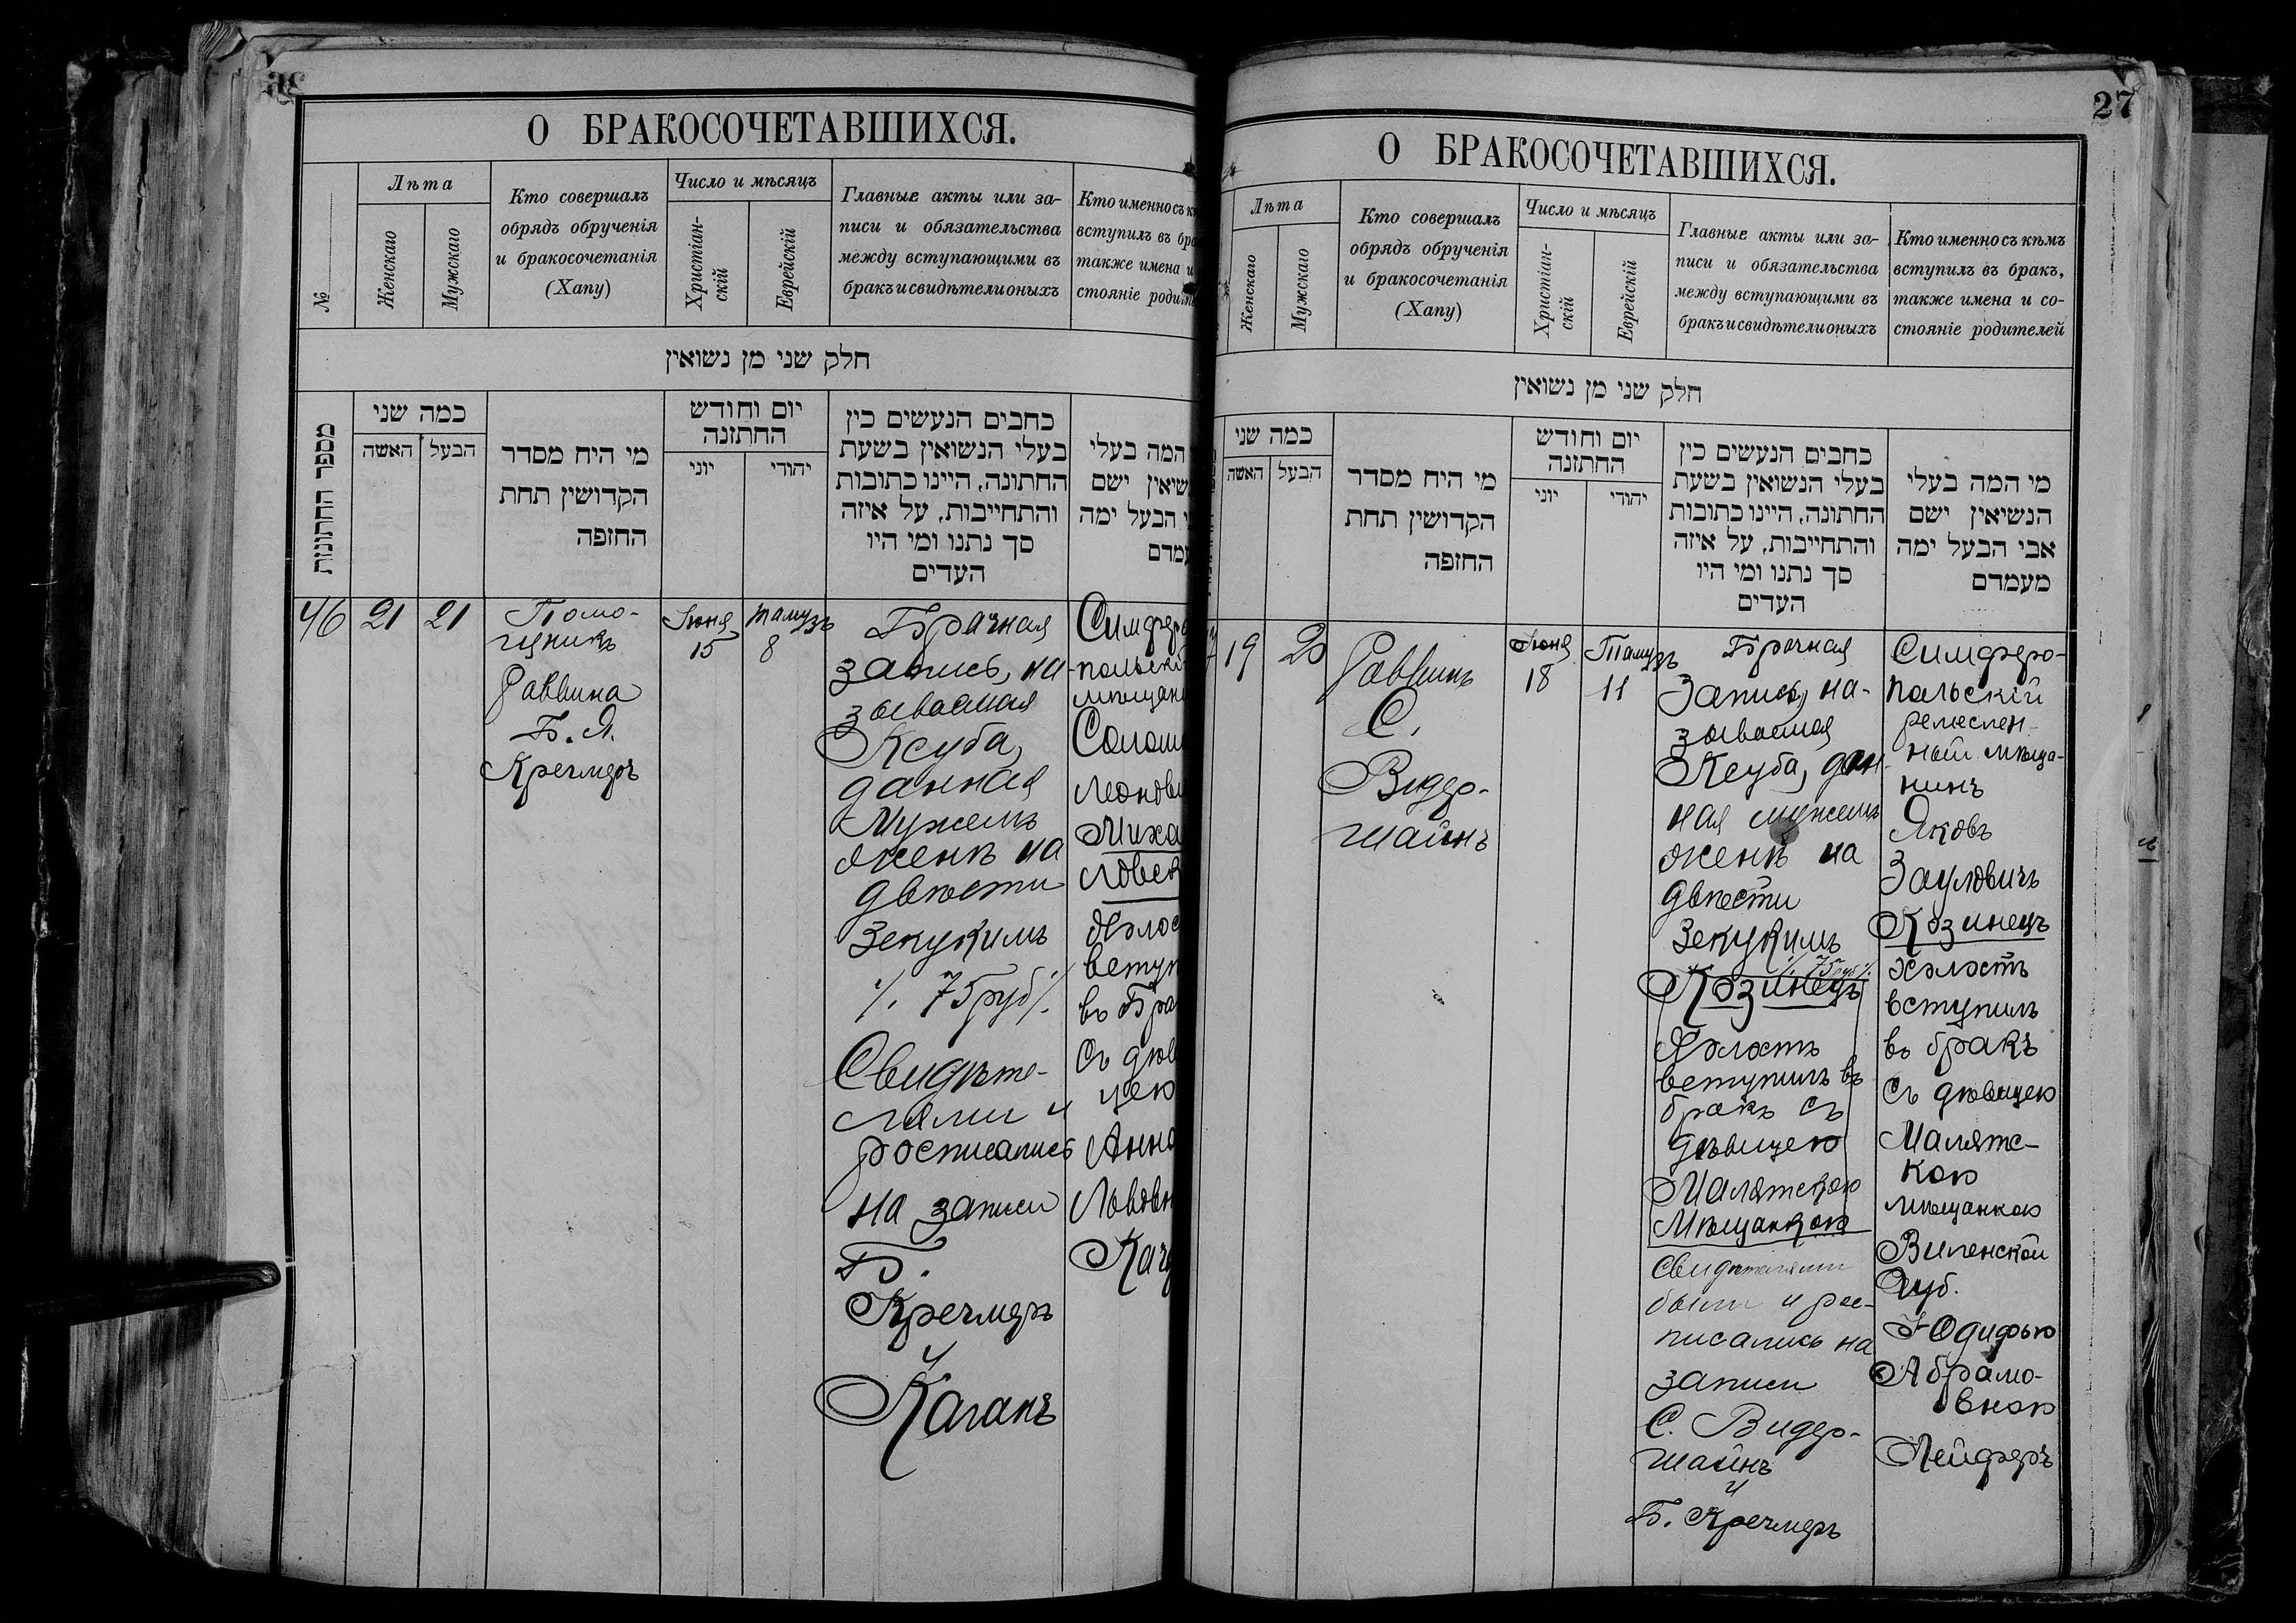 О БРАКОСОЧЕТАВШИХСЯ.
№
Лѣта
Женскаго
Мужскаго
Кто совершалъ
обрядъ обрученія
и бракосочетанія
(Хапу)
Число и мѣсяцъ
Христіан-
скій
Еврейскій
Главные акты или за-
писи и обязательства
между вступающими въ
бракъ и свидѣтели оныхъ
Кто именно съ
вступилъ въ
также имена
стояніе
חלק שני מן נשואין
מספר החתונות
כמה שני
האשה
הבעל
מי היח מסדר
הקדושין תחת
החזפה
יום וחודש
החתזנה
יוני
יהודי
כחבים הנעשים כין
בעלי הנשואין בשעת
החתונה, היינו כתובות
והתחייבות, על איזה
סך נתנו ומי היו
העדים
המה בעלי
ישם
הבעל ימה
46
21
21
Помо-
щникъ
Раввина
Б. Я.
Кречмеръ
Іюня
15
Тамузъ
8
Брачная
запись, на-
зываемая
Ксуба,
данная
Мужемъ
женѣ на
двѣсти
Зекукимъ
./. 75 руб ./.
Свидѣте-
лями и
росписались
на записи
Б.
Кречмеръ
и
Каганъ
польскі
въ
съ
цею
27
О БРАКОСОЧЕТАВШИХСЯ.
Лѣта
Женскаго
Мужскаго
Кто совершалъ
обрядъ обрученія
и бракосочетанія
(Хапу)
Число и мѣсяцъ
Христіан-
скій
Еврейскій
Главные акты или за-
писи и обязательства
между вступающими въ
бракъ и свидѣтели оныхъ
Кто именно съ кѣмъ
вступилъ въ бракъ,
также имена и со-
стояніе родителей
חלק שני מן נשואין
כמה שני
האשה
הבעל
מי היח מסדר
הקדושין תחת
החזפה
יום וחודש
החתזנה
יוני
יהודי
כחבים הנעשים כין
בעלי הנשואין בשעת
החתונה, היינו כתובות
והתחייבות, על איזה
סך נתנו ומי היו
העדים
מי המה בעלי
הנשיאין ישם
אבי הבעל ימה
מעמדם
19
20
Раввинъ
С.
Видер-
шайнъ
Іюня
18
Тамузъ
11
Брачная
Запись, на-
зываемая
Ксуба, дан-
ная мужемъ
женѣ на
двѣсти
Зекукимъ
./. 75 руб ./.
Козинецъ
Холостъ
вступилъ въ
бракъ съ
дѣвицею
Малятскою
Мѣщанкою
Свидѣтелями
были и рос-
писались на
записи
С. Видер-
шайнъ
и
Б. Кречмеръ
Симферо-
польскій
ремеслен-
ный мѣща-
нинъ
Яковъ
Зауловичъ
Козинецъ
холостъ
вступилъ
въ бракъ
съ дѣвицею
Малятс-
кою
мѣщанкою
Виленской
Губ.
Юдифью
Абрамо-
вною
Лейферъ